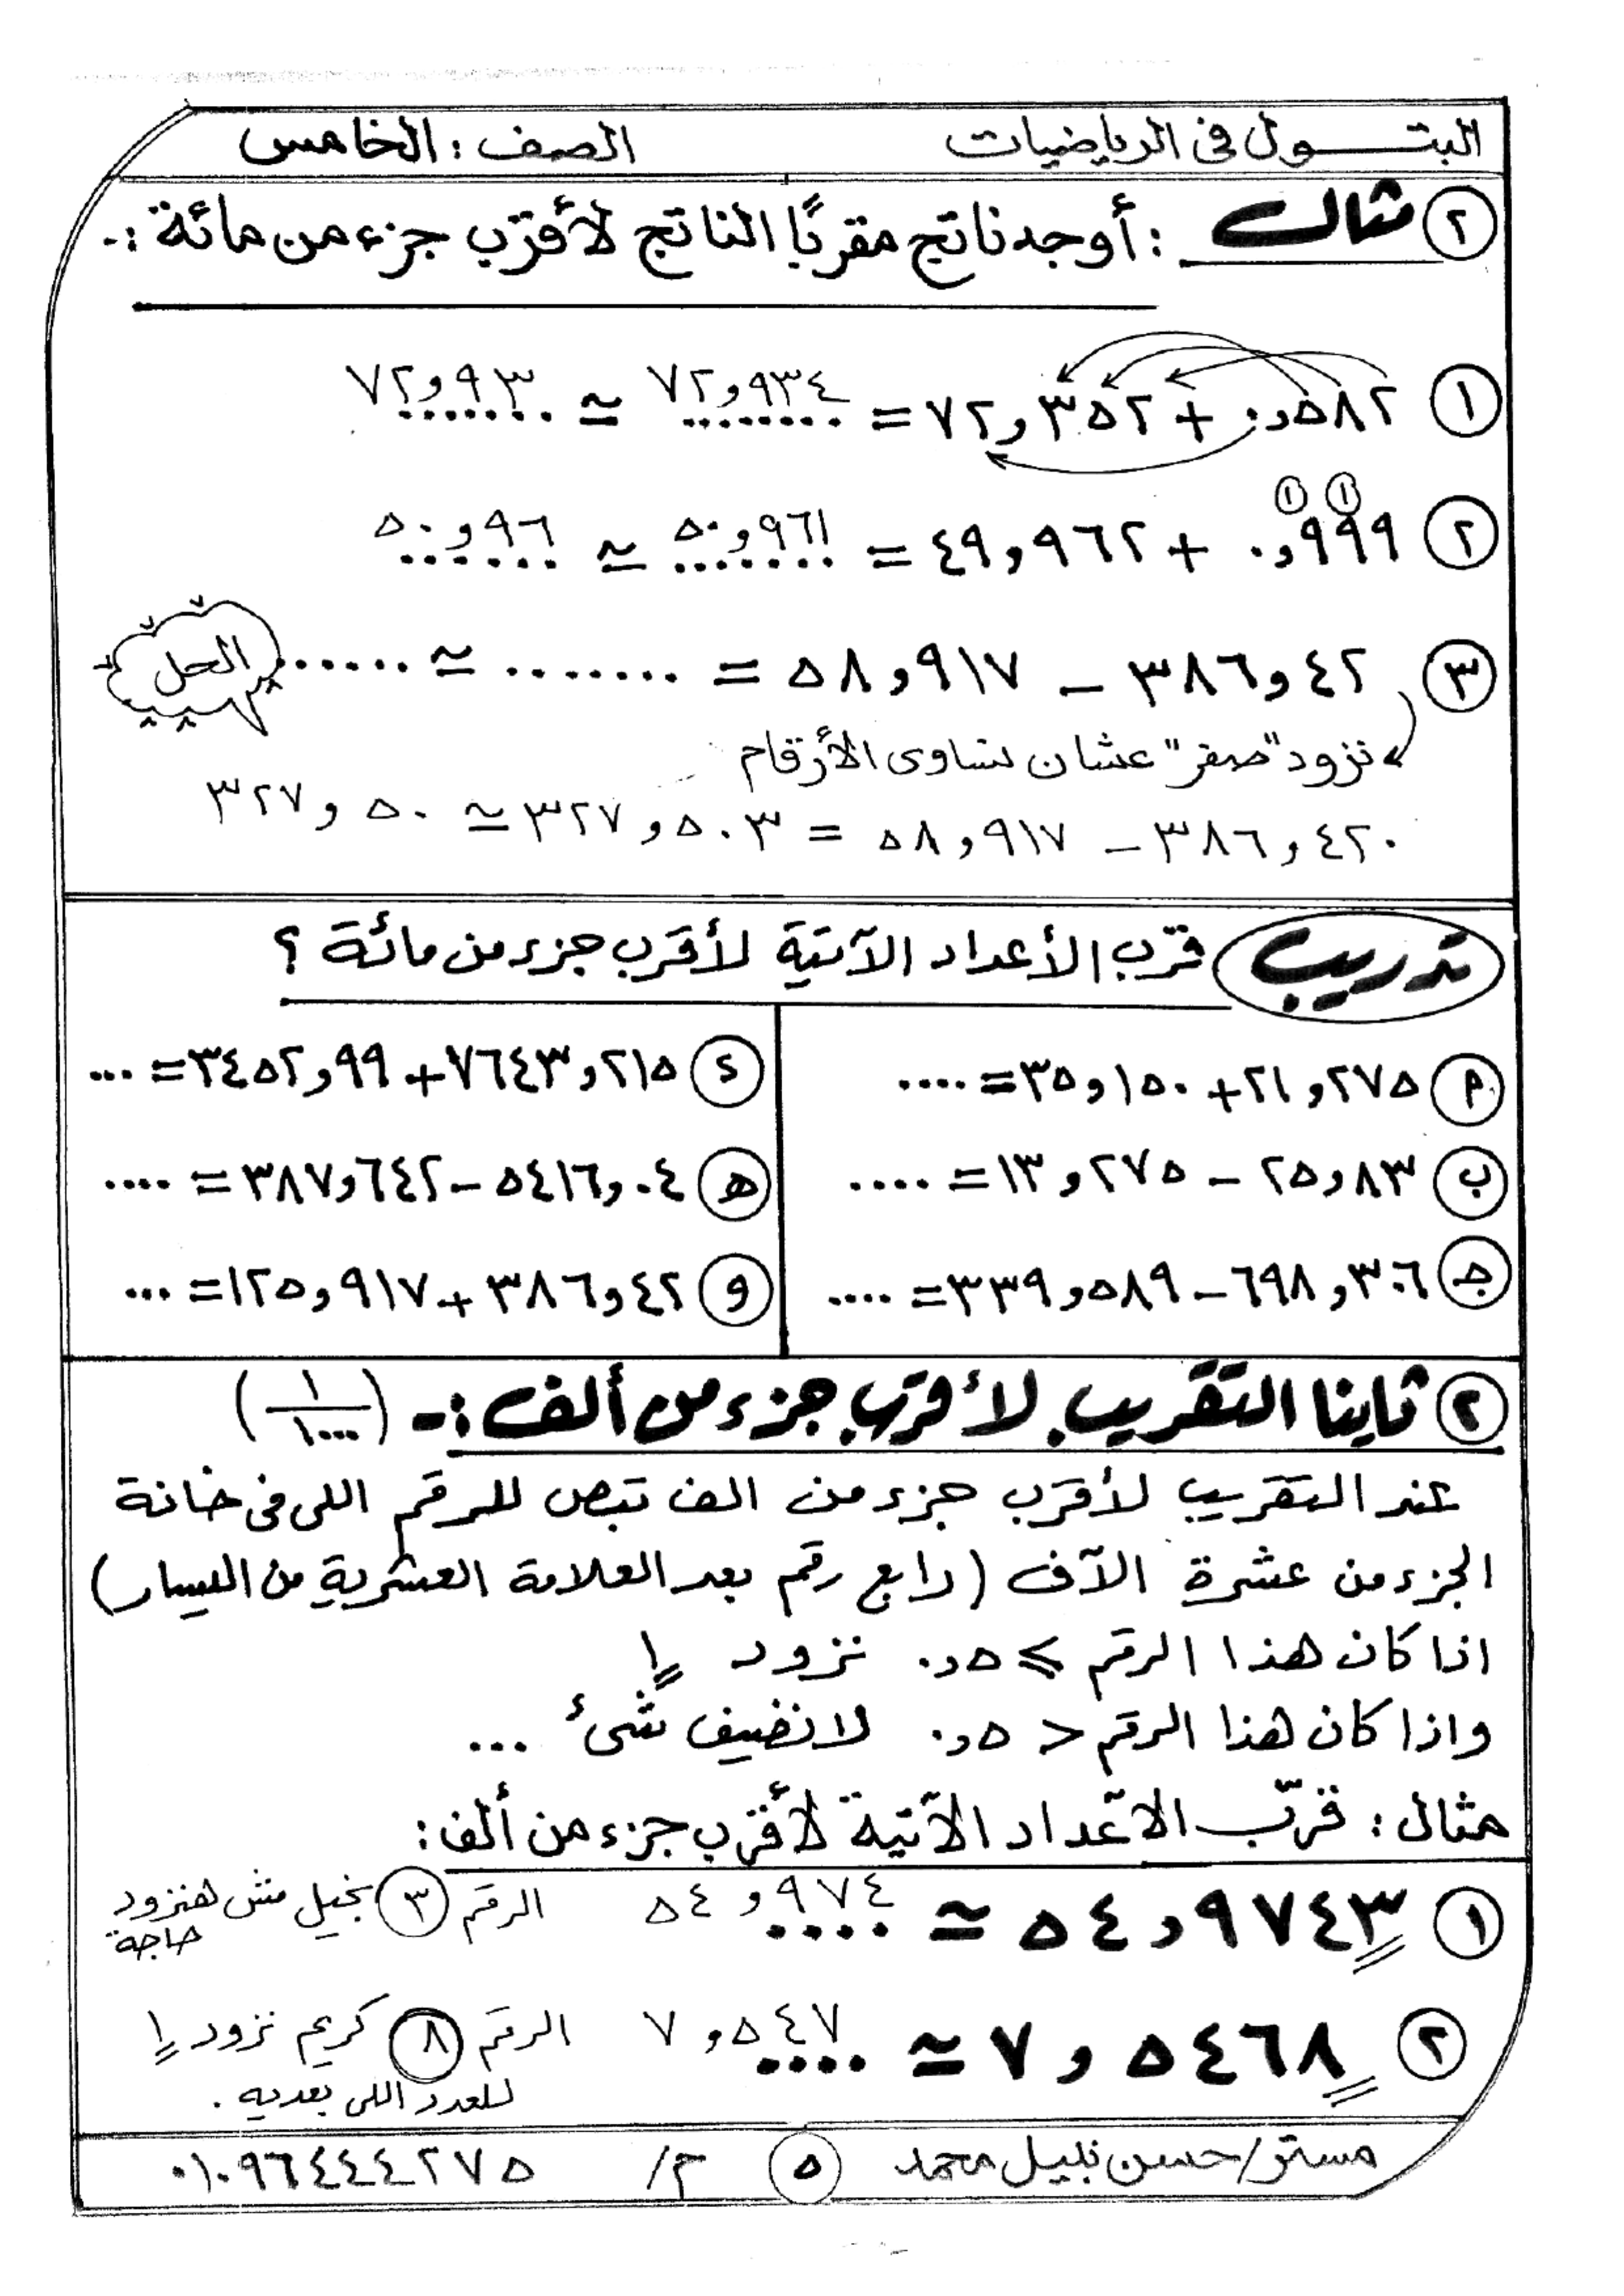 البتول في الرياضيات
الصف : الخامس
٢ مثال : أوجد ناتج مقربًا الناتج لأقرب جزء من مائة :-
١ ٠,٥٨٢ + ٧٢,٣٥٢ = ٧٢,٩٣٤ ≃ ٧٢,٩٣
١ ١
٢ ٠,٩٩٩ + ٤٩,٩٦٢ = ٥٠,٩٦١ ≃ ٥٠,٩٦
٣ ٣٨٦,٤٢ – ٥٨,٩١٧ = ....... ≃ ...... الحل
نزود "صفر" عشان نساوى الأرقام
٣٨٦,٤٢٠ – ٥٨,٩١٧ = ٣٢٧,٥٠٣ ≃ ٣٢٧,٥٠
تدريب قرّب الأعداد الآتية لأقرب جزء من مائة ؟
أ ٢١,٢٧٥ + ٣٥,١٥٠ = ....
ب ٢٥,٨٣ – ١٣,٢٧٥ = ....
جـ ٦٩٨,٣٠٦ – ٣٣٩,٥٨٩ = ....
د ٧٦٤٣,٢١٥ + ٣٤٥٢,٩٩ = ...
هـ ٥٤١٦,٠٤ – ٣٨٧,٦٤٢ = ....
و ٣٨٦,٤٢ + ١٢٥,٩١٧ = ...
٢ ثانيا التقريب لأقرب جزء من ألف :- (١/١٠٠٠)
عند التقريب لأقرب جزء من الف نبص للرقم اللى فى خانة
الجزء من عشرة الآف (رابع رقم بعد العلامة العشرية من اليسار)
اذا كان هذا الرقم ⩾ ٠,٥ نزود ١
واذا كان هذا الرقم < ٠,٥ لا نضيف شئ ...
مثال : قرّب الأعداد الآتية لأقرب جزء من ألف :
١ ٥٤,٩٧٤٣ ≃ ٥٤,٩٧٤ الرقم ٣ بخيل مش هنزود
حاجة
٢ ٧,٥٤٦٨ ≃ ٧,٥٤٧ الرقم ٨ كريم نزود ١
للعدد اللى بعديه .
مستر/حسن نبيل محمد ٥ م/ ٠١٠٩٦٤٤٤٢٧٥